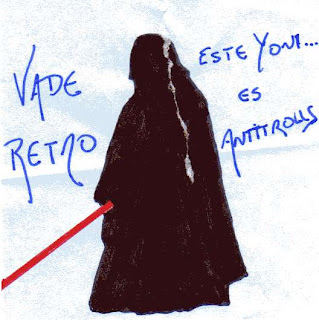 VADE
RETRO
ESTE YONI...
ES
ANTITROLLS